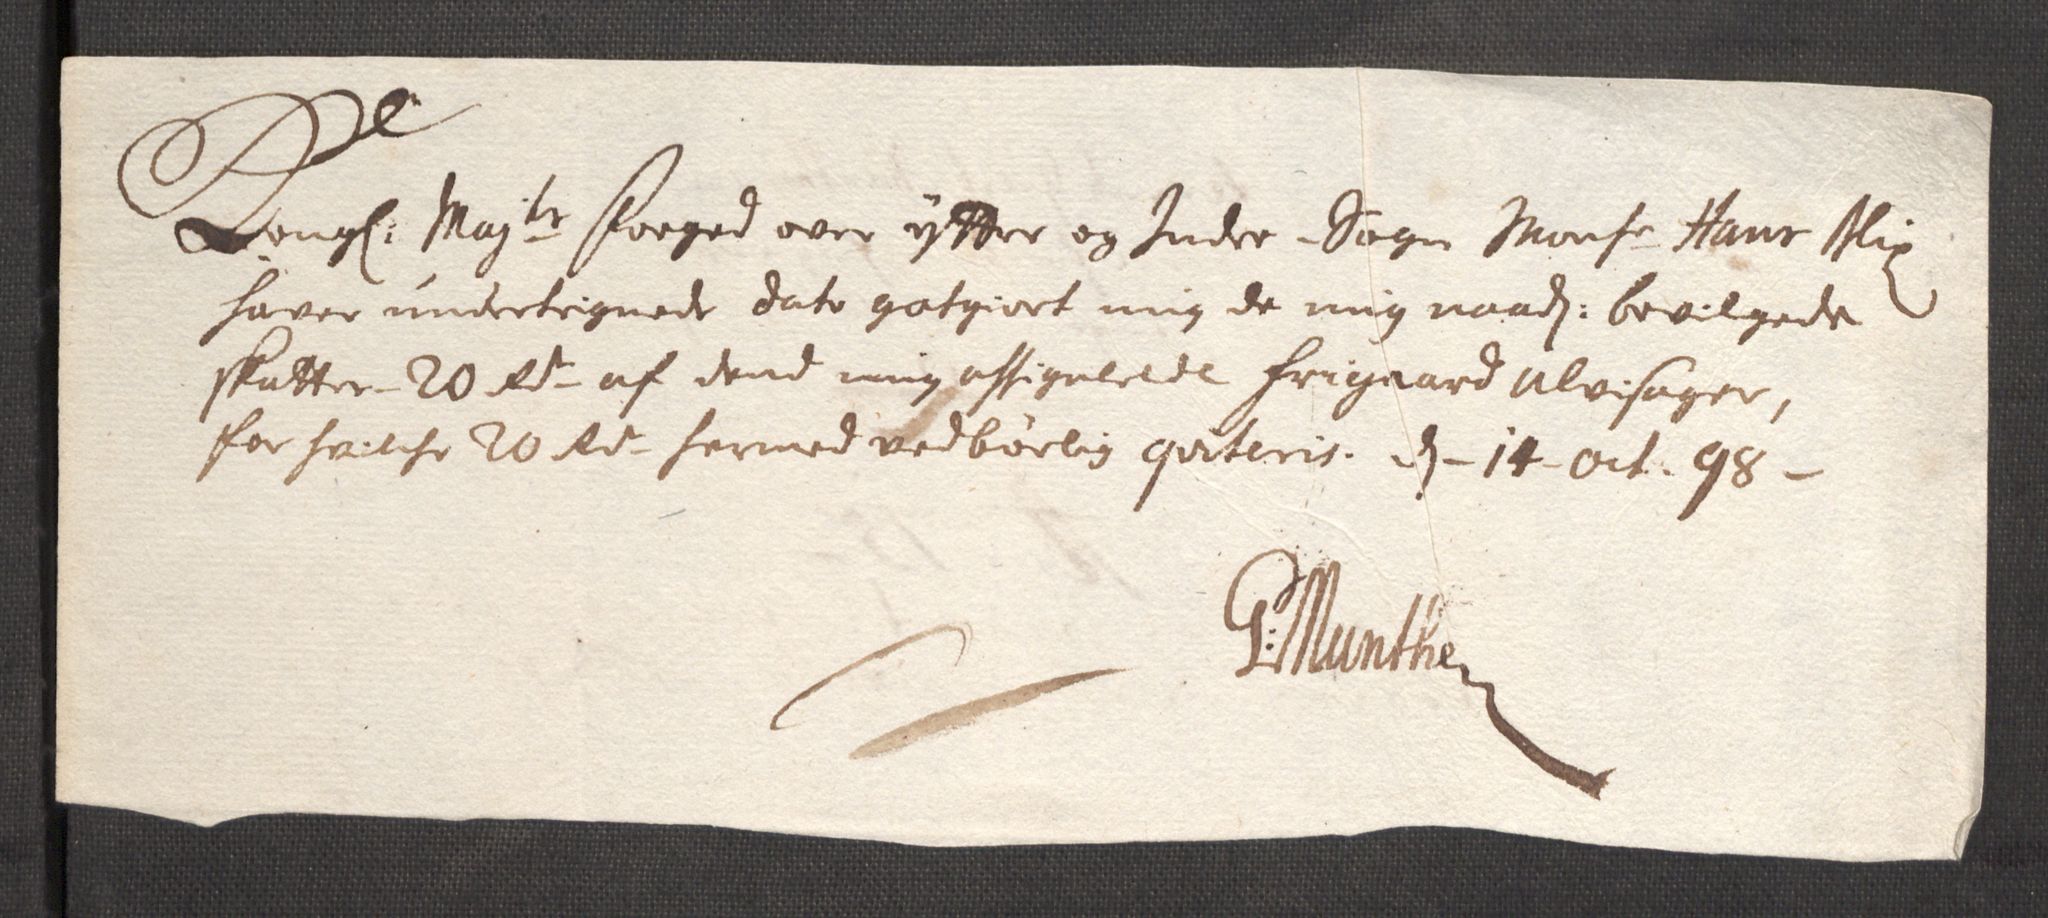 Kongl: Maj:ts Foeged over ÿtter og Inder Sogn Monsr Hans Blix
haver undertegnede dato gotgiort mig de mig naad: bevilgede
skatter 20 Rdr af dend mig assignerede frigaard Alvisager,
for hvilche 20 Rdr hermed vedbørlig qviteris. d. 14 Oct. 98
G: Munthe